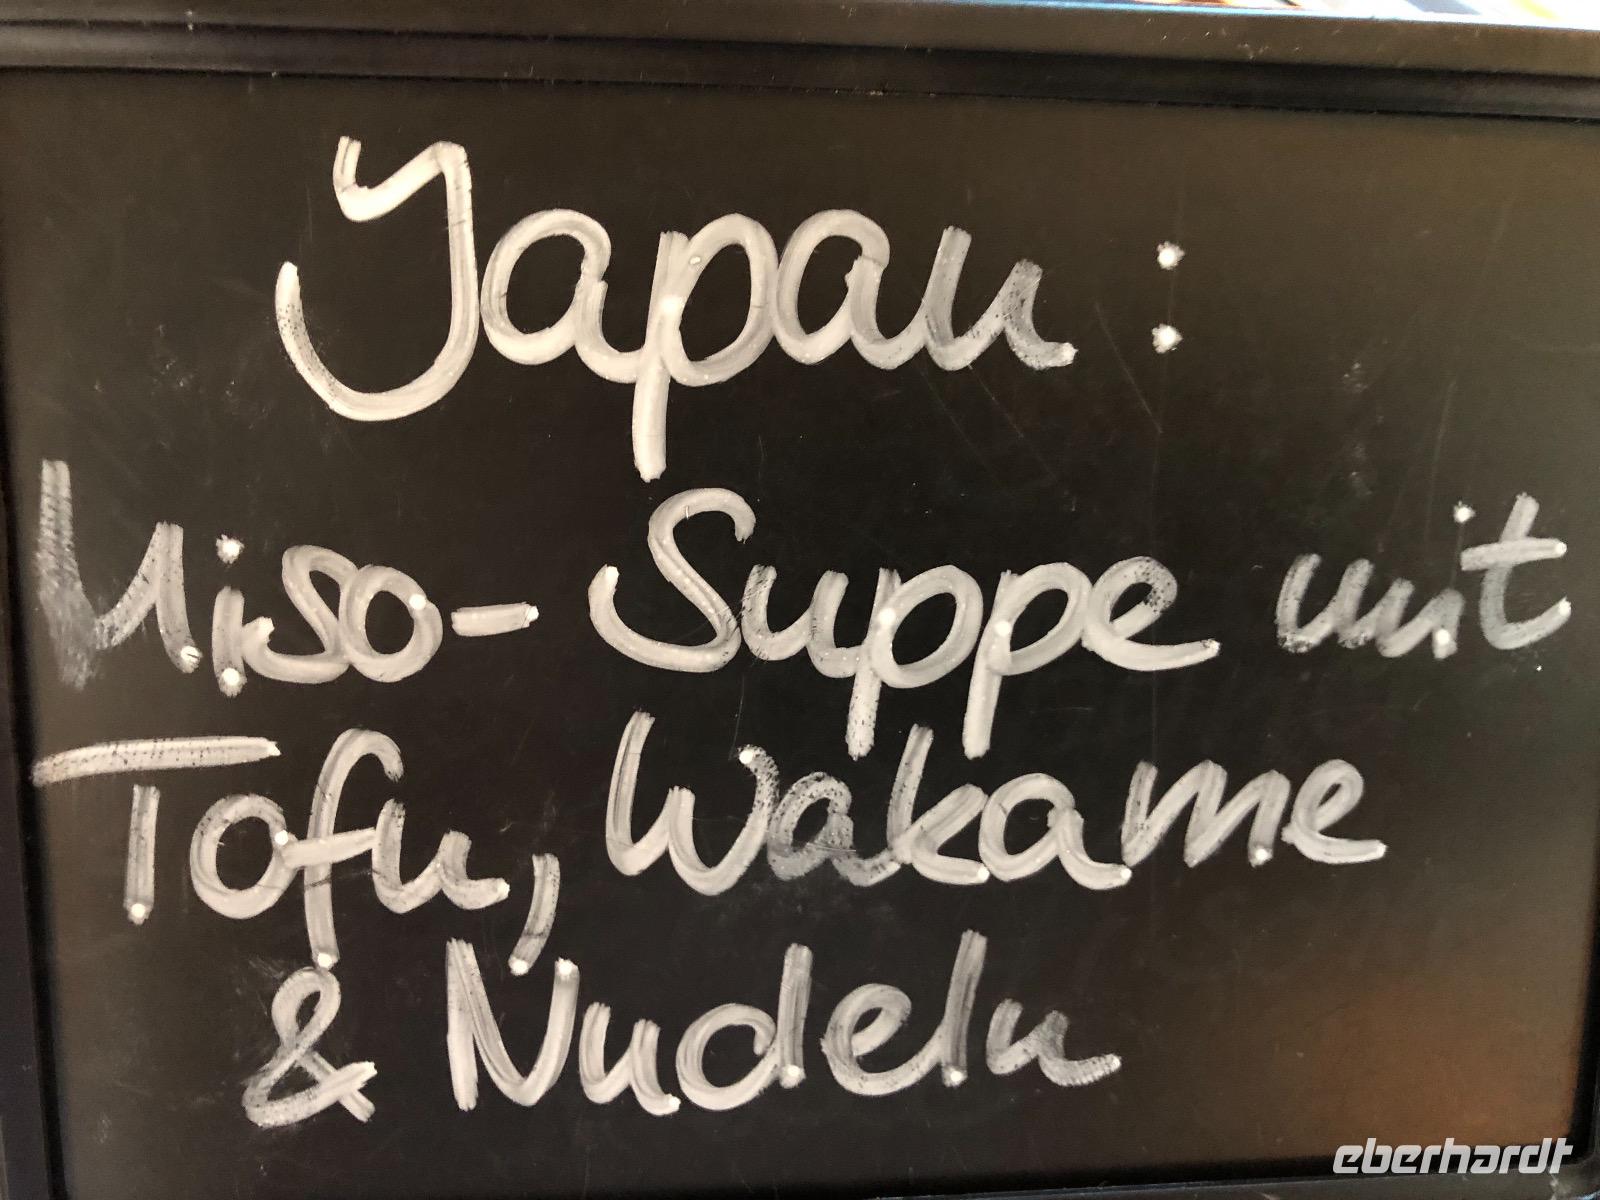 Japan :
Miso-Suppe mit
Tofu, Wakame
& Nudeln
eberhardt